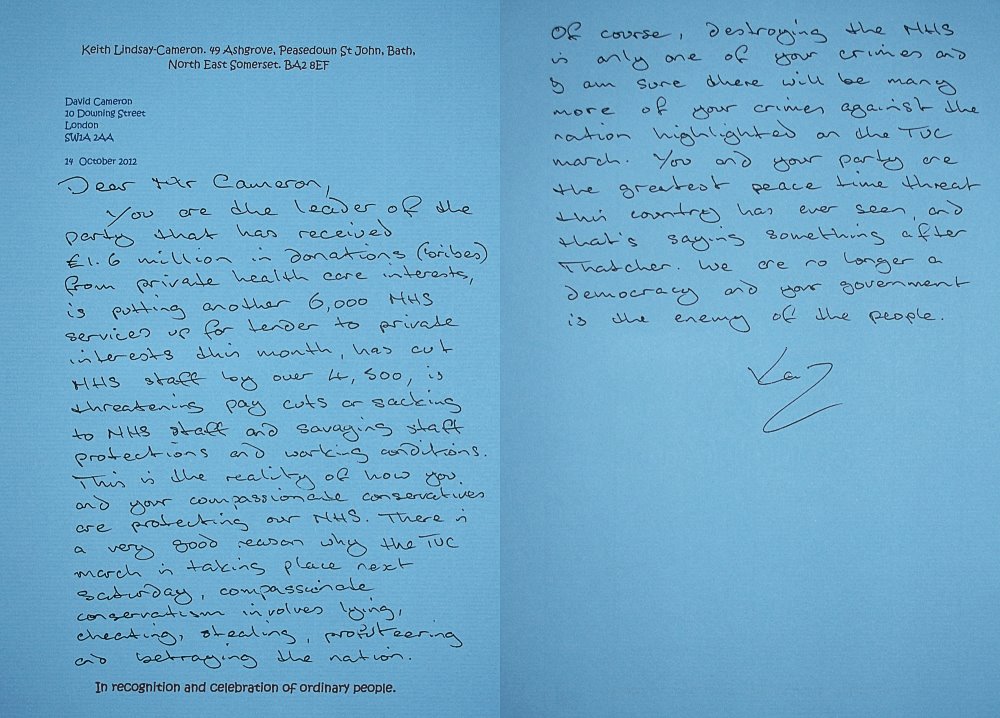 Keith Lindsay-Cameron. 49 Ashgrove, Peasedown St John, Bath,
North East Somerset. BA2 8EF
David Cameron
10 Downing Street
London
SW1A 2AA
14 October 2012
Dear Mr Cameron,
You are the leader of the
party that has received
£1.6 million in donations (bribes)
from private health care interests,
is putting another 6,000 NHS
services up for tender to private
interests this month, has cut
NHS staff by over 4,500, is
threatening pay cuts or sacking
to NHS staff and savaging staff
protections and working conditions.
This is the reality of how you
and your compassionate conservatives
are protecting our NHS. There is
a very good reason why the TUC
march is taking place next
Saturday, compassionate
conservatism involves lying,
cheating, stealing, profiteering
and betraying the nation.
In recognition and celebration of ordinary people.
Of course, destroying the NHS
is only one of your crimes and
I am sure there will be many
more of your crimes against the
nation highlighted on the TUC
march. You and your party are
the greatest peace time threat
this country has ever seen, and
that's saying something after
Thatcher. We are no longer a
democracy and your government
is the enemy of the people.